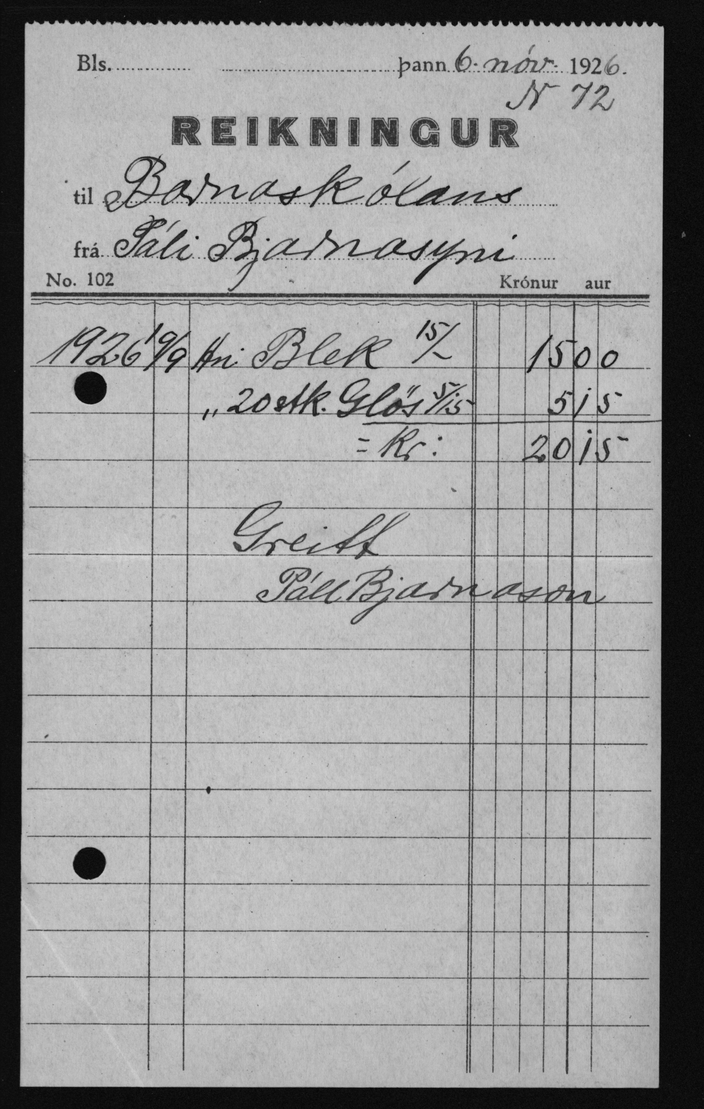 Bls. þann 6. nóv. 1926.
N 72
REIKNINGUR
til Barnaskólans
frá Páli Bjarnasyni
No. 102 Krónur aur
1926 19/9 Blek 15/- 15 00
" 20 stk. Glös 5/15 5 15
= Kr: 20 15
Greitt
Páll Bjarnason